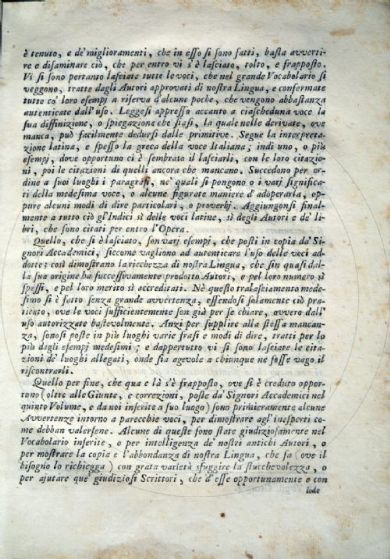 è tenuto, e de' miglioramenti, che in esso si sono fatti, basta avverti-
re e disaminar ciò, che per entro vi s'è lasciato, tolto, e frapposto.
Vi si sono pertanto lasciate tutte le voci, che nel grande Vocabolario si
veggono, tratte dagli Autori approvati di nostra Lingua, e confermate
tutte co' loro esempi a riserva d'alcune poche, che vengono abbastanza
autenticate dall'uso. Leggesi appresso accanto a ciascheduna voce la
sua diffinizione, o spiegazione che siasi, la quale nelle derivate, ove
manca, può facilmente dedursi dalle primitive. Segue la interpreta-
zione latina, e spesso la greca della voce Italiana; indi uno, o più
esempj, dove opportuno ci è sembrato il lasciarli, con le loro citazio-
ni, poi le citazioni di quelli ancora che mancano. Succedono per or-
dine a suoi luoghi i paragrafi, ne' quali si pongono o i varj significa-
ti della medesima voce, o alcune figurate maniere d'adoperarla, op-
pure alcuni modi di dire particolari, o proverbj. Aggiungonsi final-
mente a tutto ciò gl'Indici sì delle voci latine, sì degli Autori e de' li-
bri, che sono citati per entro l'Opera.
Quello, che si è lasciato, son varj esempj, che posti in copia da' Si-
gnori Accademici, siccome vagliono ad autenticare l'uso delle voci ad-
dotte; così dimostrano la ricchezza di nostra Lingua, che sin quasi dal-
la sua origine ha successivamente prodotto Autori, e pel loro numero sì
spessi, e pel loro merito sì accreditati. Nè questo tralasciamento mede-
simo si è fatto senza grande avvertenza, essendosi solamente ciò pra-
ticato, ove le voci sufficientemente son già per se chiare, ovvero dall'
uso autorizzate bastevolmente. Anzi per supplire alla stessa mancan-
za, sonosi poste in più luoghi varie frasi e modi di dire, tratti per lo
più dagli esempj medesimi; e dappertutto vi si sono lasciate le cita-
zioni de' luoghi allegati, onde sia agevole a chiunque ne fosse vago il
riscontrarli.
Quello per fine, che qua e là s'è frapposto, ove si è creduto oppor-
tuno (oltre alle Giunte, e correzioni, poste da' Signori Accademici nel
quinto Volume, e da noi inserite a suo luogo) sono primieramente alcune
Avvertenze intorno a parecchie voci, per dimostrare agl'inesperti co-
me debban valersene. Alcune di queste sono state giudiziosamente nel
Vocabolario inserite, o per intelligenza de' nostri antichi Autori, o
per mostrare la copia e l'abbondanza di nostra Lingua, che fa (ove il
bisogno lo richiegga) con grata varietà sfuggire la stucchevolezza, o
per ajutare que' giudiziosi Scrittori, che d'esse opportunamente e con
lode